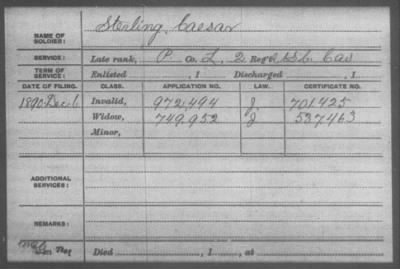 NAME OF SOLDIER: Sterling, Caesar
SERVICE: Late rank, P Co. L, 2 Reg't U.S.C. Cav
TERM OF SERVICE: Enlisted , 1 Discharged , 1
DATE OF FILING. CLASS. APPLICATION NO. LAW. CERTIFICATE NO.
1890 Dec. 6 Invalid, 972,494 J 701425
Widow, 749,952 J 537463
Minor,
ADDITIONAL SERVICES:
REMARKS:
Died , 1 , at